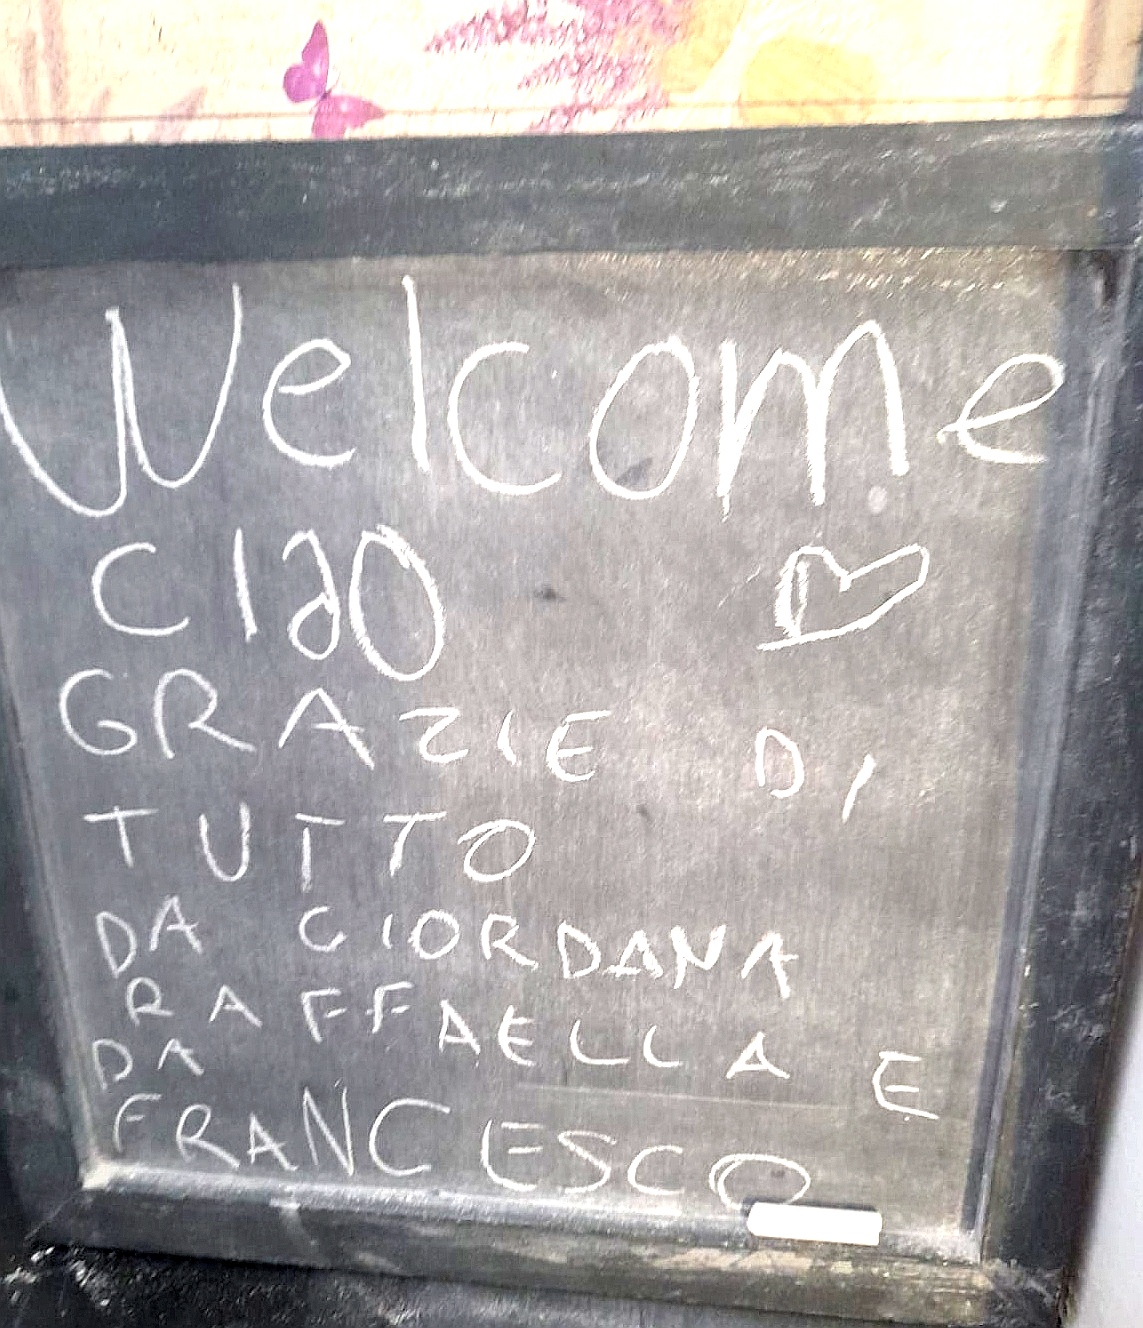 Welcome
CIaO
GRAZIE DI
TUTTO
DA GIORDANA
RAFFAELLA E
DA
FRANCESCO